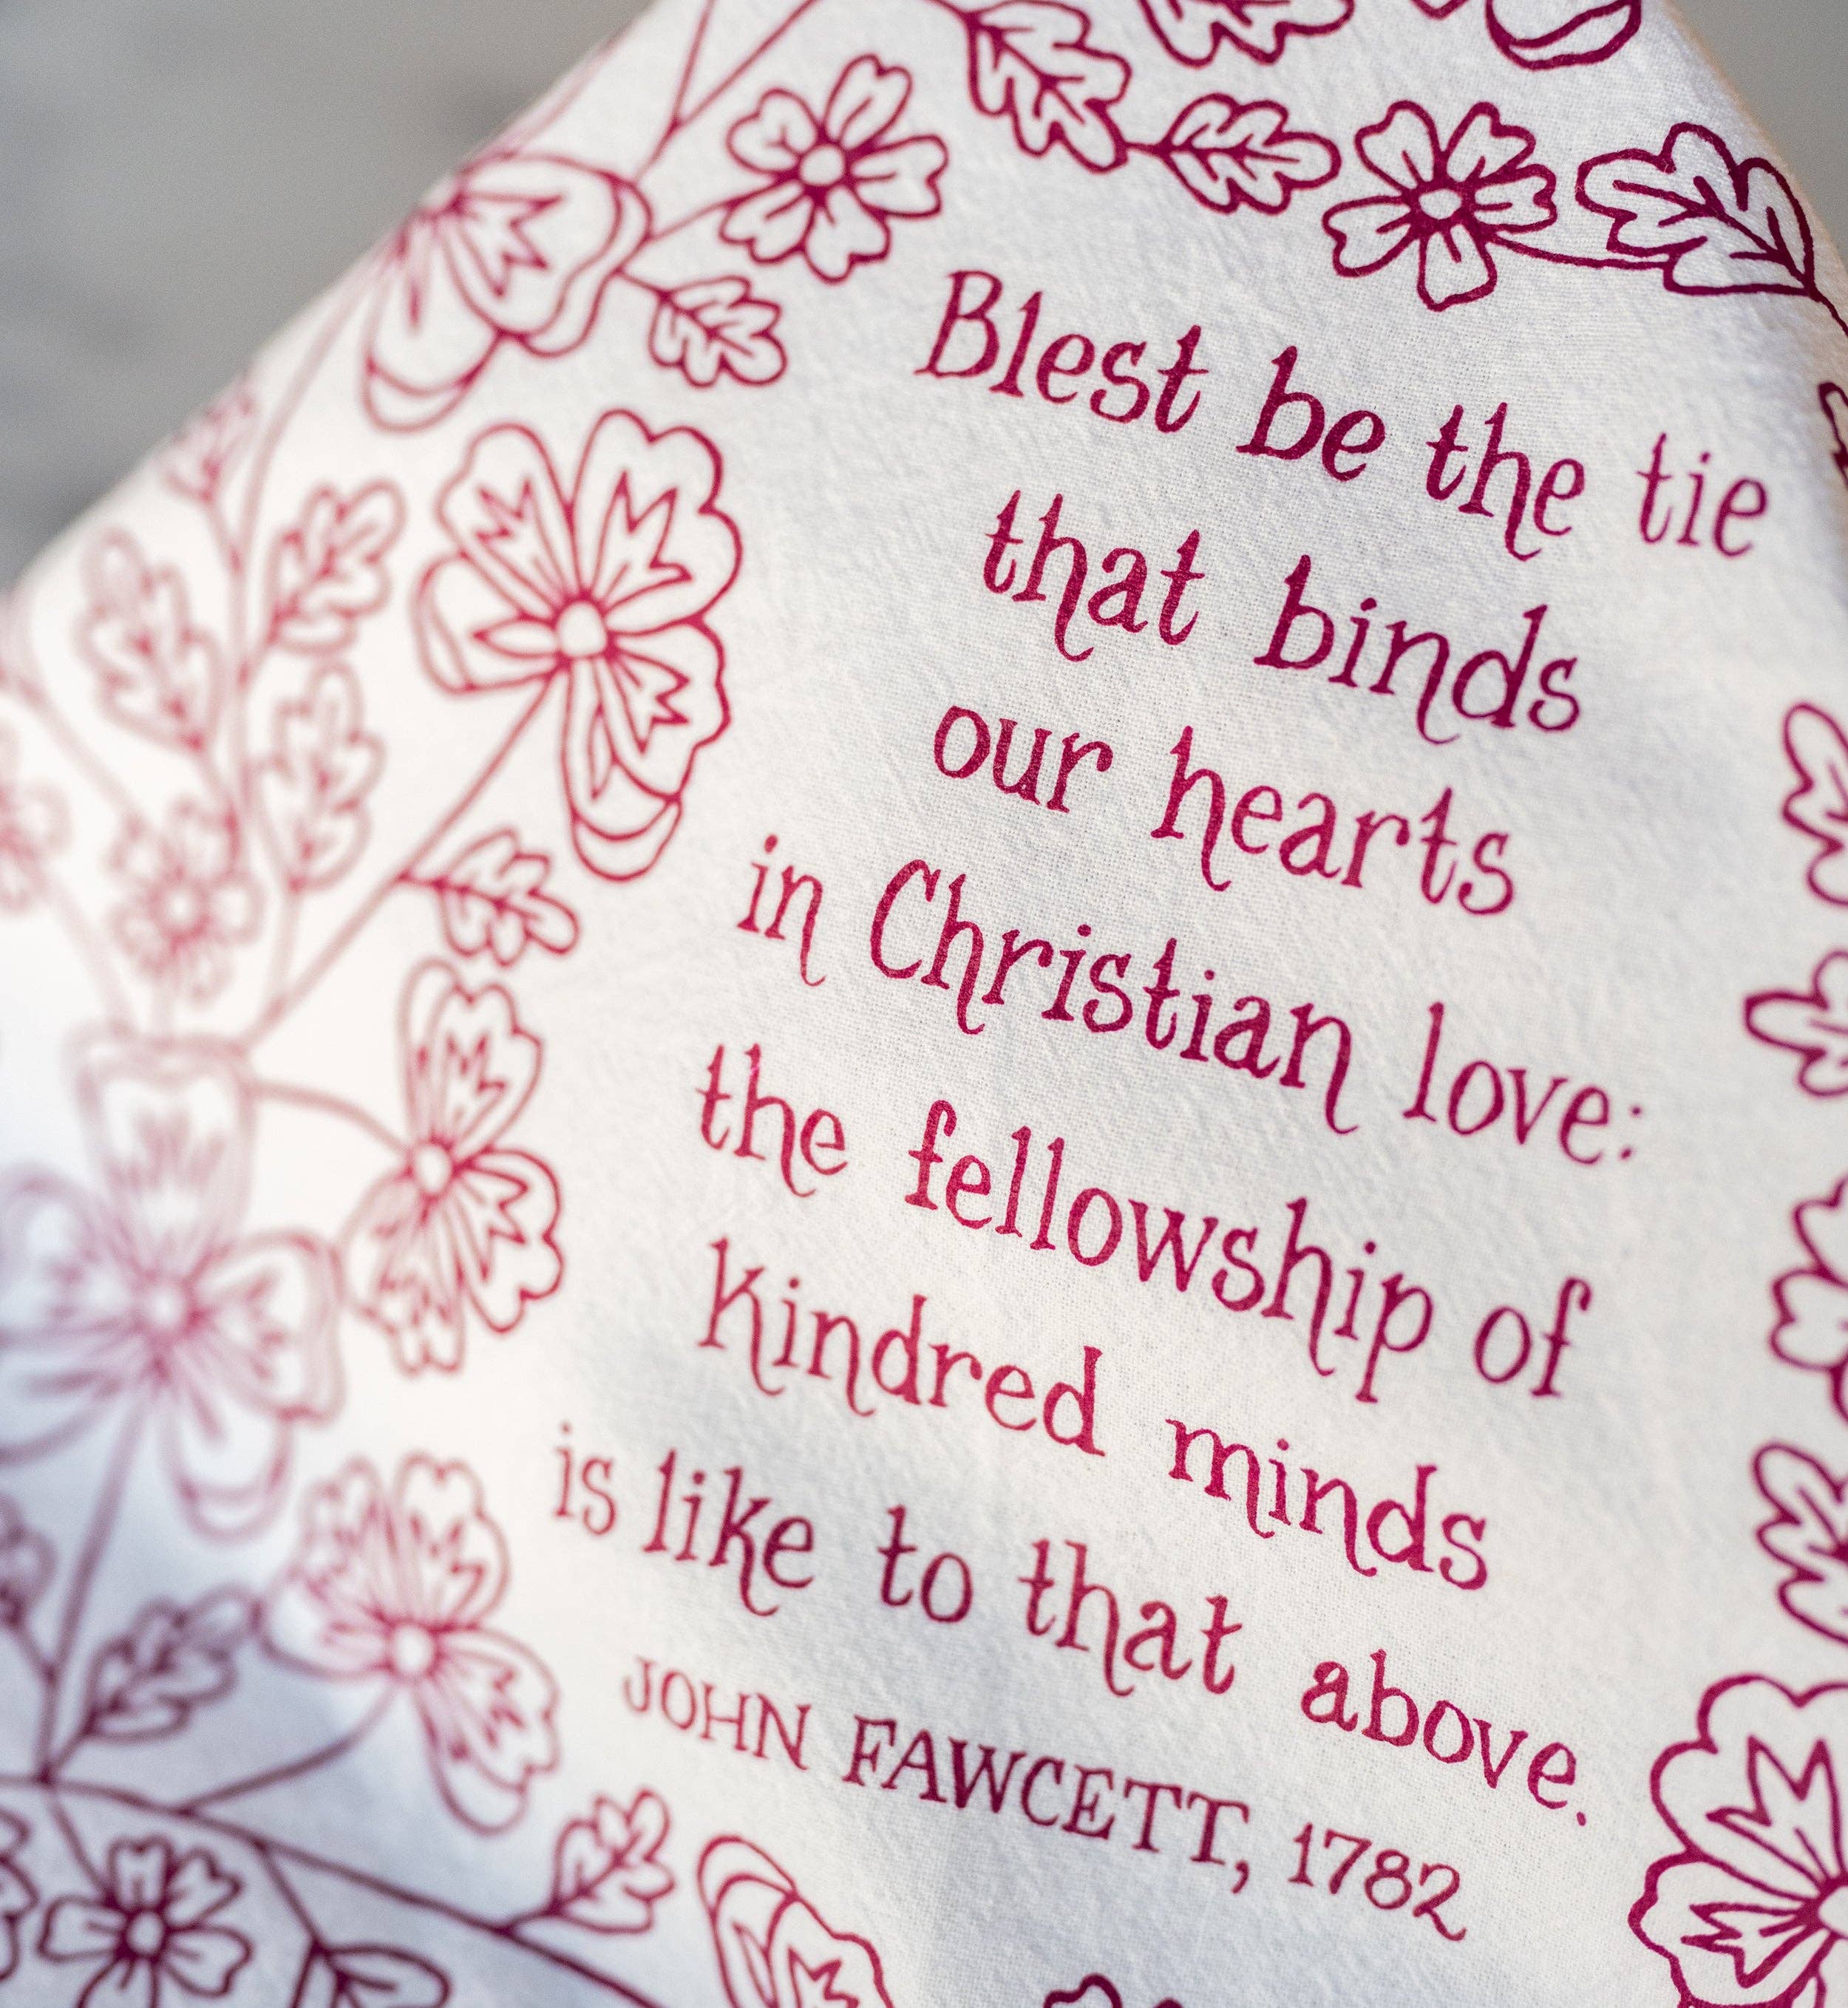 Blest be the tie
that binds
our hearts
in Christian love:
the fellowship of
kindred minds
is like to that above.
JOHN FAWCETT, 1782